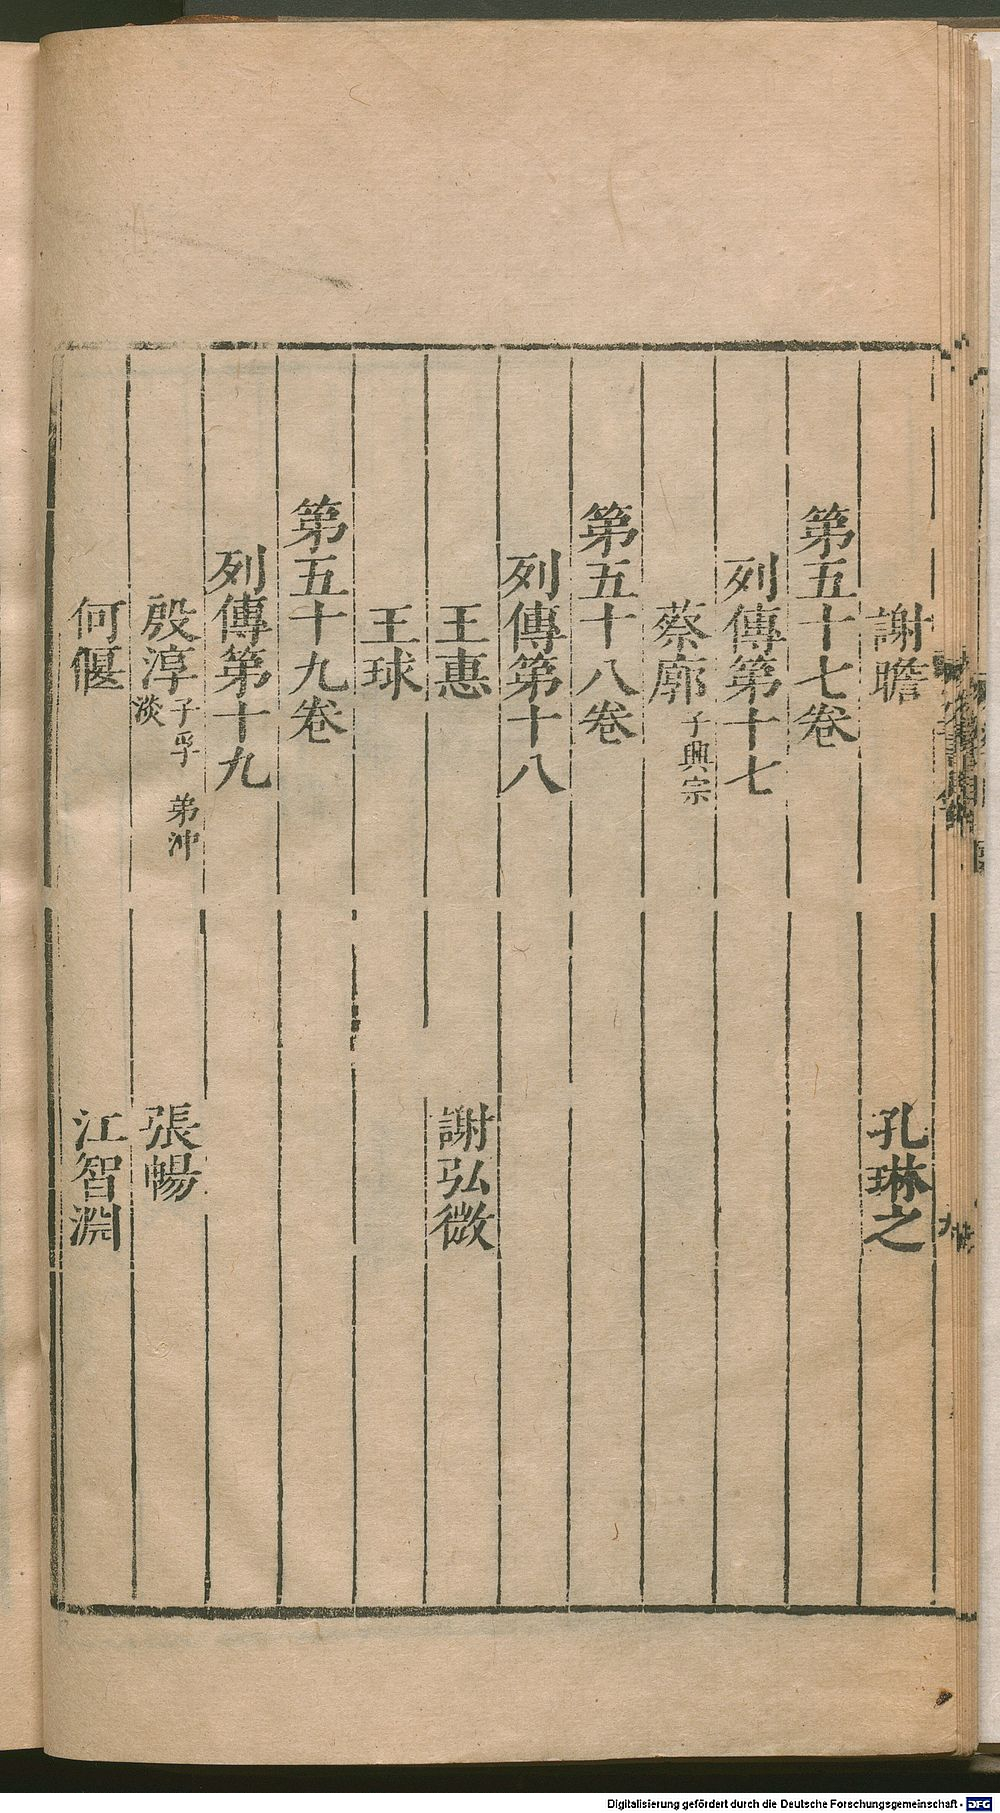 謝瞻 孔琳之
第五十七卷
列傳第十七
蔡廓 子興宗
第五十八卷
列傳第十八
王惠 謝弘微
王球
第五十九卷
列傳第十九
殷淳 子孚 弟沖 淡 張暢
何偃 江智淵
Digitalisierung gefördert durch die Deutsche Forschungsgemeinschaft - DFG